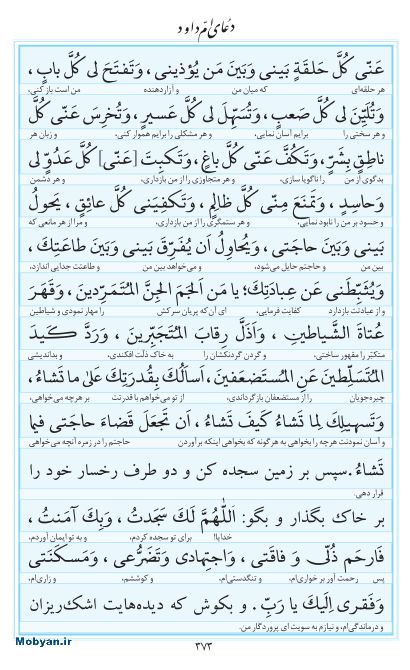 دعای امّ داود
عَنّی کُلَّ حَلقَةٍ بَینی وَبَینَ مَن یُؤذینی، وَتَفتَحَ لی کُلَّ بابٍ،
هر حلقه‌ای که میان من و آزاردهنده من است باز کنی،
وَتُلَیِّنَ لی کُلَّ صَعبٍ، وَتُسَهِّلَ لی کُلَّ عَسیرٍ، وَتُخرِسَ عَنّی کُلَّ
و هر سختی را برایم آسان نمایی، و هر مشکلی را برایم هموار کنی، و زبان هر
ناطِقٍ بِشَرٍّ، وَتَکُفَّ عَنّی کُلَّ باغٍ، وَتَکبِتَ [عَنّی] کُلَّ عَدُوٍّ لی
بدگوی از من را ناگویا سازی، و هر متجاوزی را از من بازداری، و هر دشمن
وَحاسِدٍ، وَتَمنَعَ مِنّی کُلَّ ظالِمٍ، وَتَکفِیَنی کُلَّ عائِقٍ، یَحولُ
و حسود بر من را نابود نمایی، و هر ستمگری را از من بازداری، و مرا از هر مانعی که
بَینی وَبَینَ حاجَتی، وَیُحاوِلُ اَن یُفَرِّقَ بَینی وَبَینَ طاعَتِکَ،
بین من و حاجتم حایل می‌شود، و می‌خواهد بین من و طاعتت جدایی اندازد،
وَیُثَبِّطَنی عَن عِبادَتِکَ؛ یا مَن اَلجَمَ الجِنَّ المُتَمَرِّدینَ، وَقَهَرَ
و از عبادتت بازدارد کفایت فرمایی، ای آن‌که پریان سرکش را مهار نمودی و شیاطین
عُتاةَ الشَّیاطینِ، وَاَذَلَّ رِقابَ المُتَجَبِّرینَ، وَرَدَّ کَیدَ
متکبّر را مقهور ساختی، و گردن گردنکشان را به خاک ذلّت افکندی، و بداندیشی
المُتَسَلِّطینَ عَنِ المُستَضعَفینَ، اَسأَلُکَ بِقُدرَتِکَ عَلیٰ ما تَشاءُ،
چیره‌جویان را از مستضعفان بازگرداندی، از تو می‌خواهم با قدرتت بر هرچه می‌خواهی،
وَتَسهیلِکَ لِما تَشاءُ کَیفَ تَشاءُ، اَن تَجعَلَ قَضاءَ حاجَتی فیما
و آسان نمودنت هرچه را بخواهی به هرگونه که بخواهی اینکه برآوردن حاجتم را در زمره آنچه می‌خواهی
تَشاءُ. سپس بر زمین سجده کن و دو طرف رخسار خود را
قرار دهی.
بر خاک بگذار و بگو: اَللّٰهُمَّ لَکَ سَجَدتُ، وَبِکَ آمَنتُ،
خدایا! برای تو سجده کردم، و به تو ایمان آوردم،
فَارحَم ذُلّی وَ فاقَتی، وَاجتِهادی وَتَضَرُّعی، وَمَسکَنَتی
پس رحمت آور بر خواری‌ام، و تنگدستی‌ام، و کوششم، و زاری‌ام،
وَفَقری اِلَیکَ یا رَبِّ. و بکوش که دیده‌هایت اشک‌ریزان
و درماندگی‌ام، و نیازم به سویت ای پروردگار من.
۳۷۳
Mobyan.ir